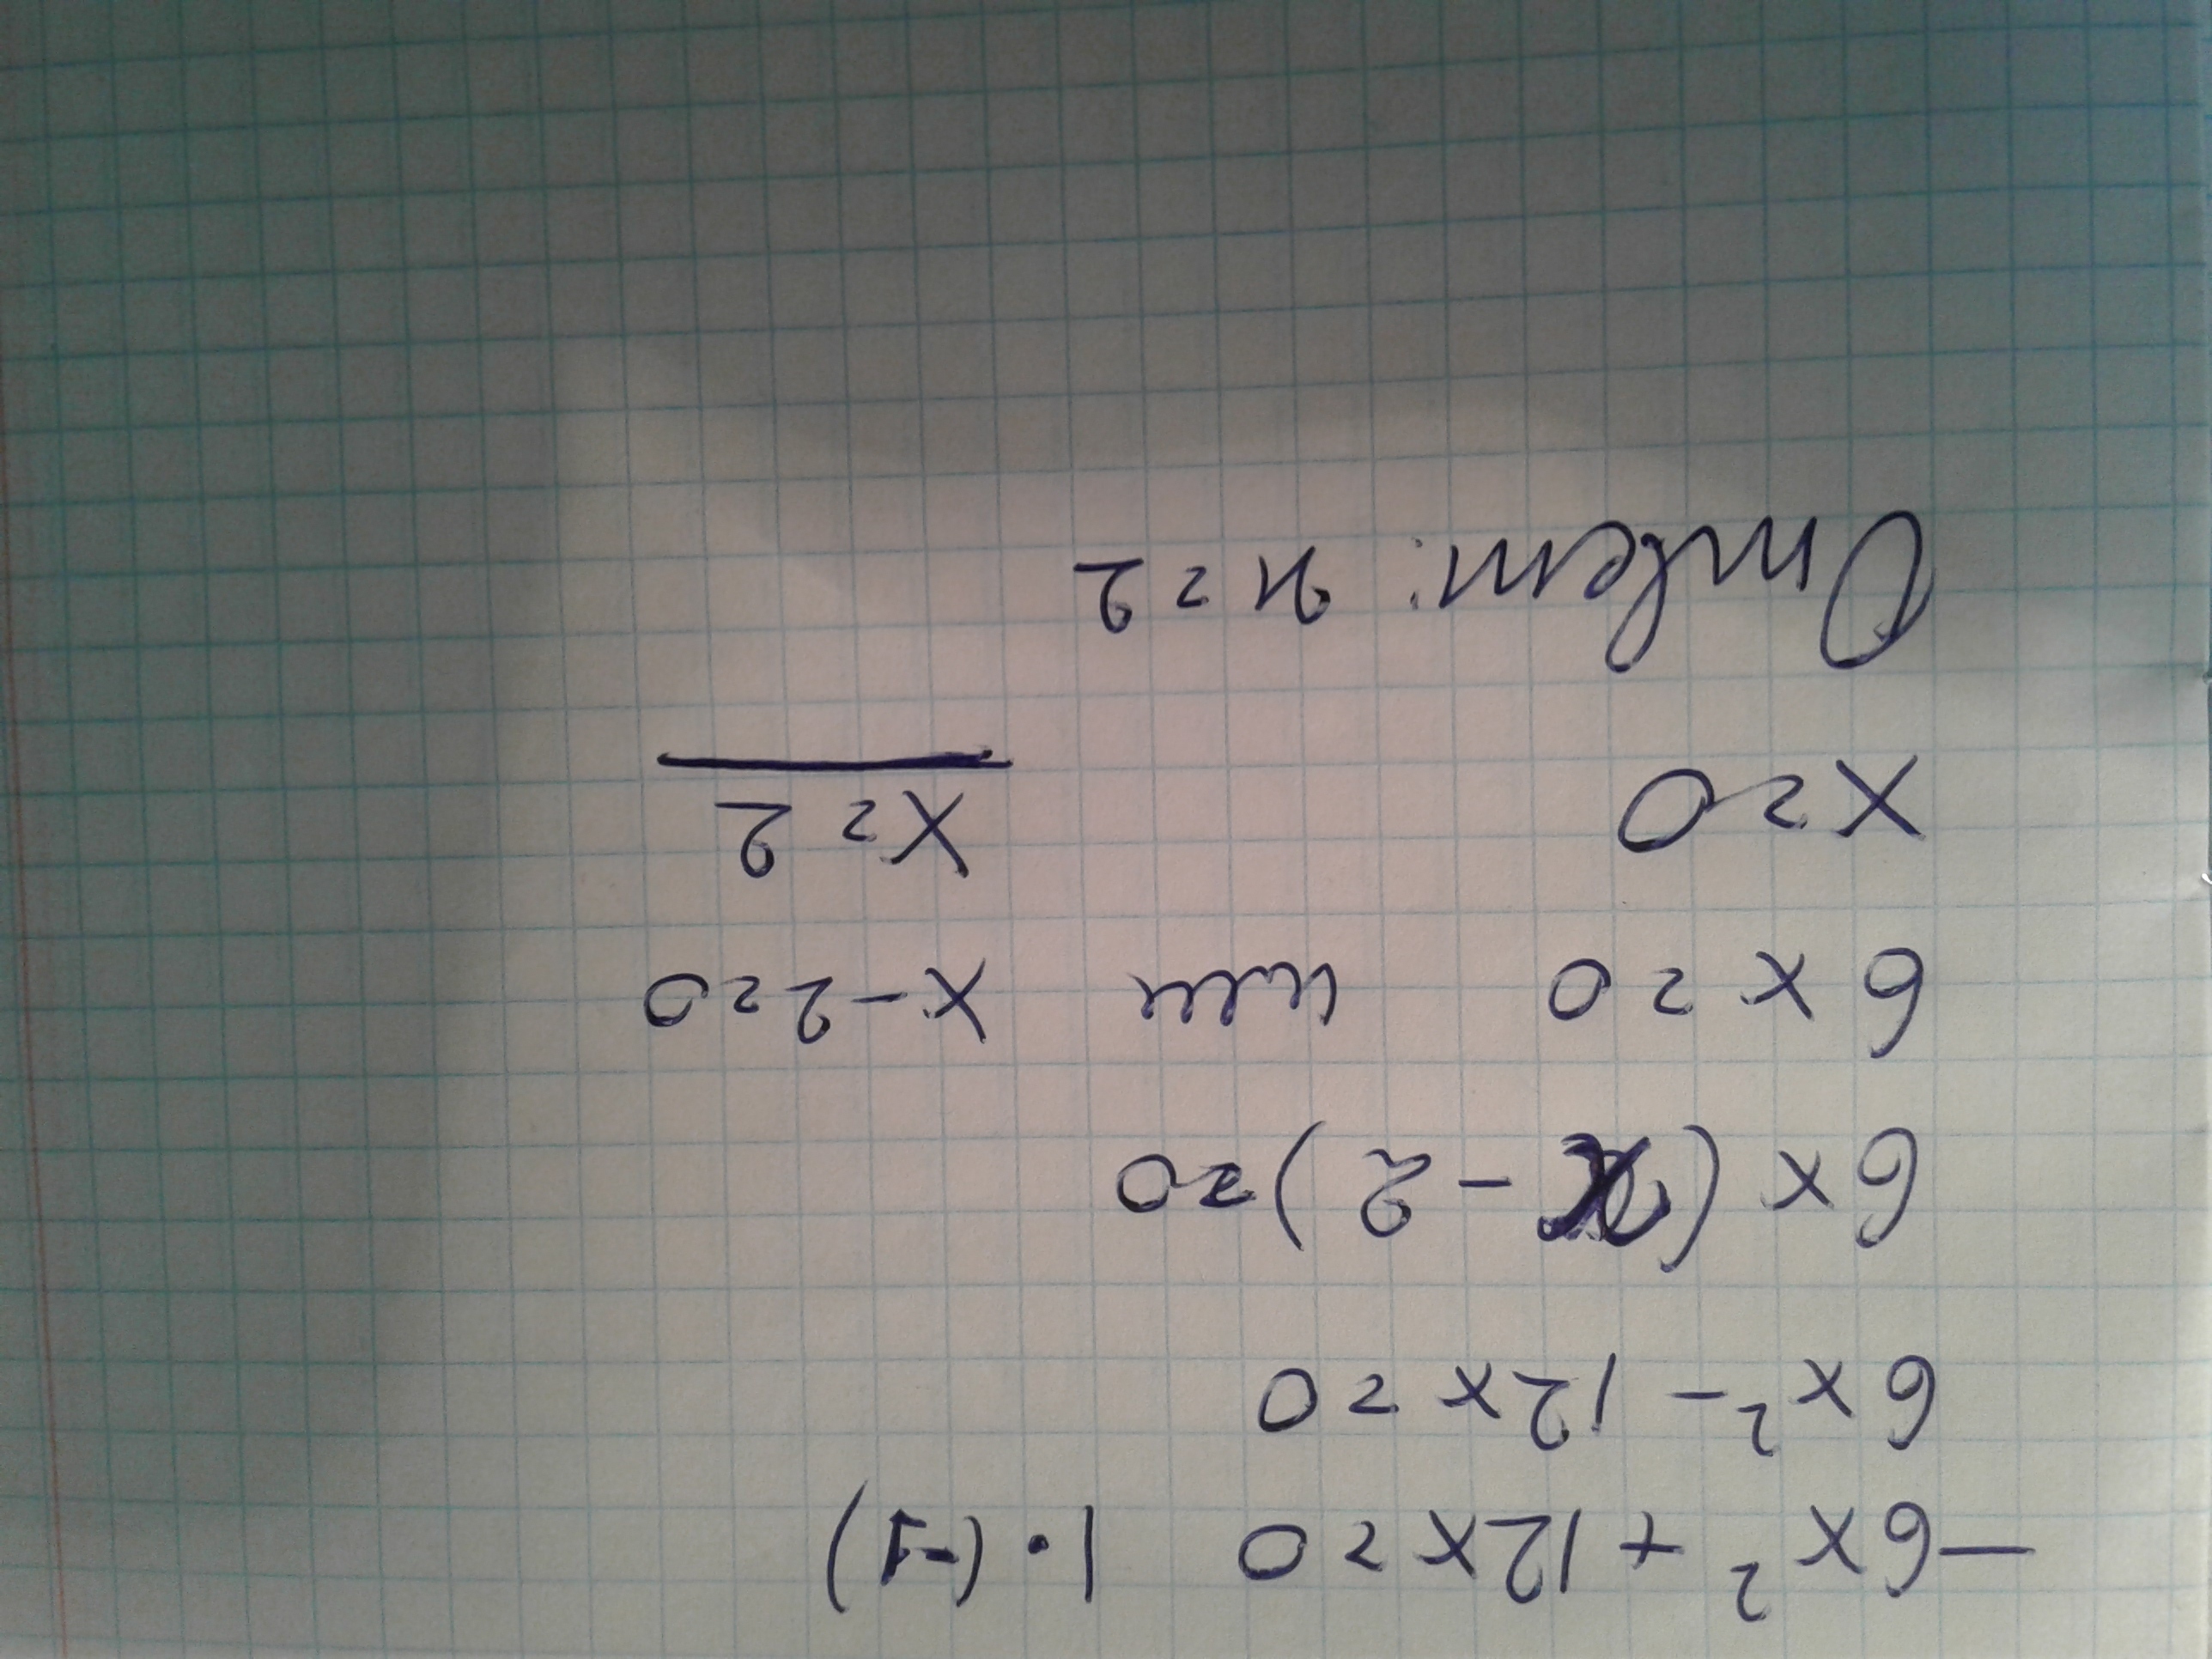 -6x² + 12x = 0 | · (-1)
6x² - 12x = 0
6x (x - 2) = 0
6x = 0 или x - 2 = 0
x = 0 x = 2
Ответ: x = 2